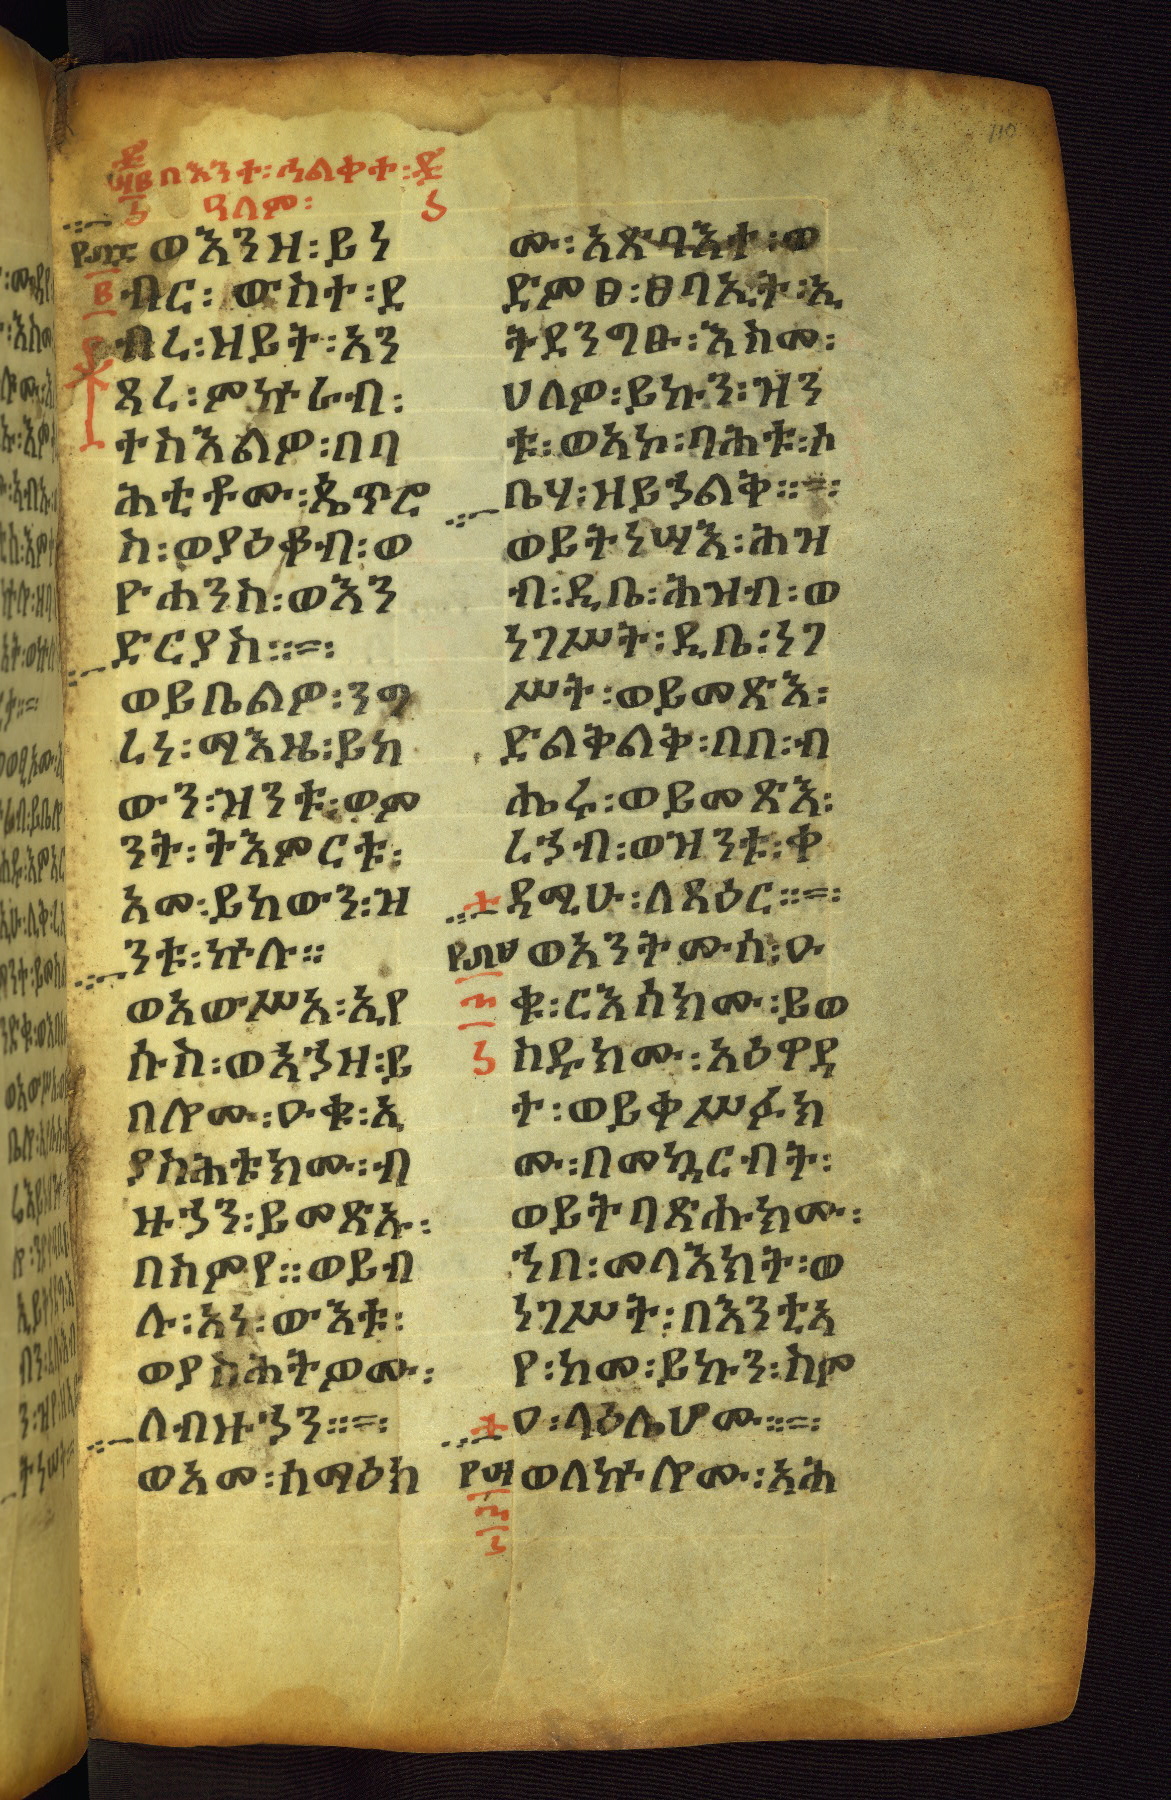 በእንተ፡ሓልቀተ፡
ዓለም፡
ወእንዘ፡ይነ
ብር፡ ውስተ፡ደ
ብረ፡ዘይት፡አን
ጻረ፡ምኵራብ፡
ተስእልዎ፡በባ
ሕቲቶሙ፡ጴጥሮ
ስ፡ወያዕቆብ፡ወ
ዮሐንስ፡ወእን
ድርያስ።
ወይቤልዎ፡ንግ
ረነ፡ማእዜ፡ይከ
ውን፡ዝንቱ፡ወም
ንት፡ትእምርቱ፡
አመ፡ይከውን፡ዝ
ንቱ፡ኵሉ።
ወአውሥአ፡ኢየ
ሱስ፡ወእኀዘ፡ይ
በሎሙ፡ዑቁ፡ኢ
ያስሕቱክሙ፡ብ
ዙኃን፡ይመጽኡ፡
በስምየ።ወይብ
ሉ፡አነ፡ውእቱ፡
ወያስሕትዎሙ፡
ለብዙኃን።
ወአመ፡ሰማዕክ
ሙ፡አጽባእተ፡ወ
ድምፀ፡ፀባኢት፡ኢ
ትደንግፁ፡እስመ፡
ሀለዎ፡ይኩን፡ዝን
ቱ፡ወአኮ፡ባሕቱ፡ሶ
ቤሃ፡ዘይኀልቅ።
ወይትነሣእ፡ሕዝ
ብ፡ዲቤ፡ሕዝብ፡ወ
ነገሥት፡ዲቤ፡ነገ
ሥት፡ወይመጽእ፡
ድልቅልቅ፡በበ፡ብ
ሔሩ፡ወይመጽእ፡
ረኀብ፡ወዝንቱ፡ቀ
ዳሚሁ፡ለጻዕር።
ወአንትሙሰ፡ዑ
ቁ፡ርእሰክሙ፡ይወ
ስዱክሙ፡አዕዋደ
ት፡ወይቀሥፉክ
ሙ፡በመኳርብት፡
ወይትባጽሑክሙ፡
ኀበ፡መላእክት፡ወ
ነገሥት፡በእንቲአ
የ፡ከመ፡ይኩን፡ስም
ዐ፡ላዕሌሆሙ።
ወለኵሎሙ፡አሕ